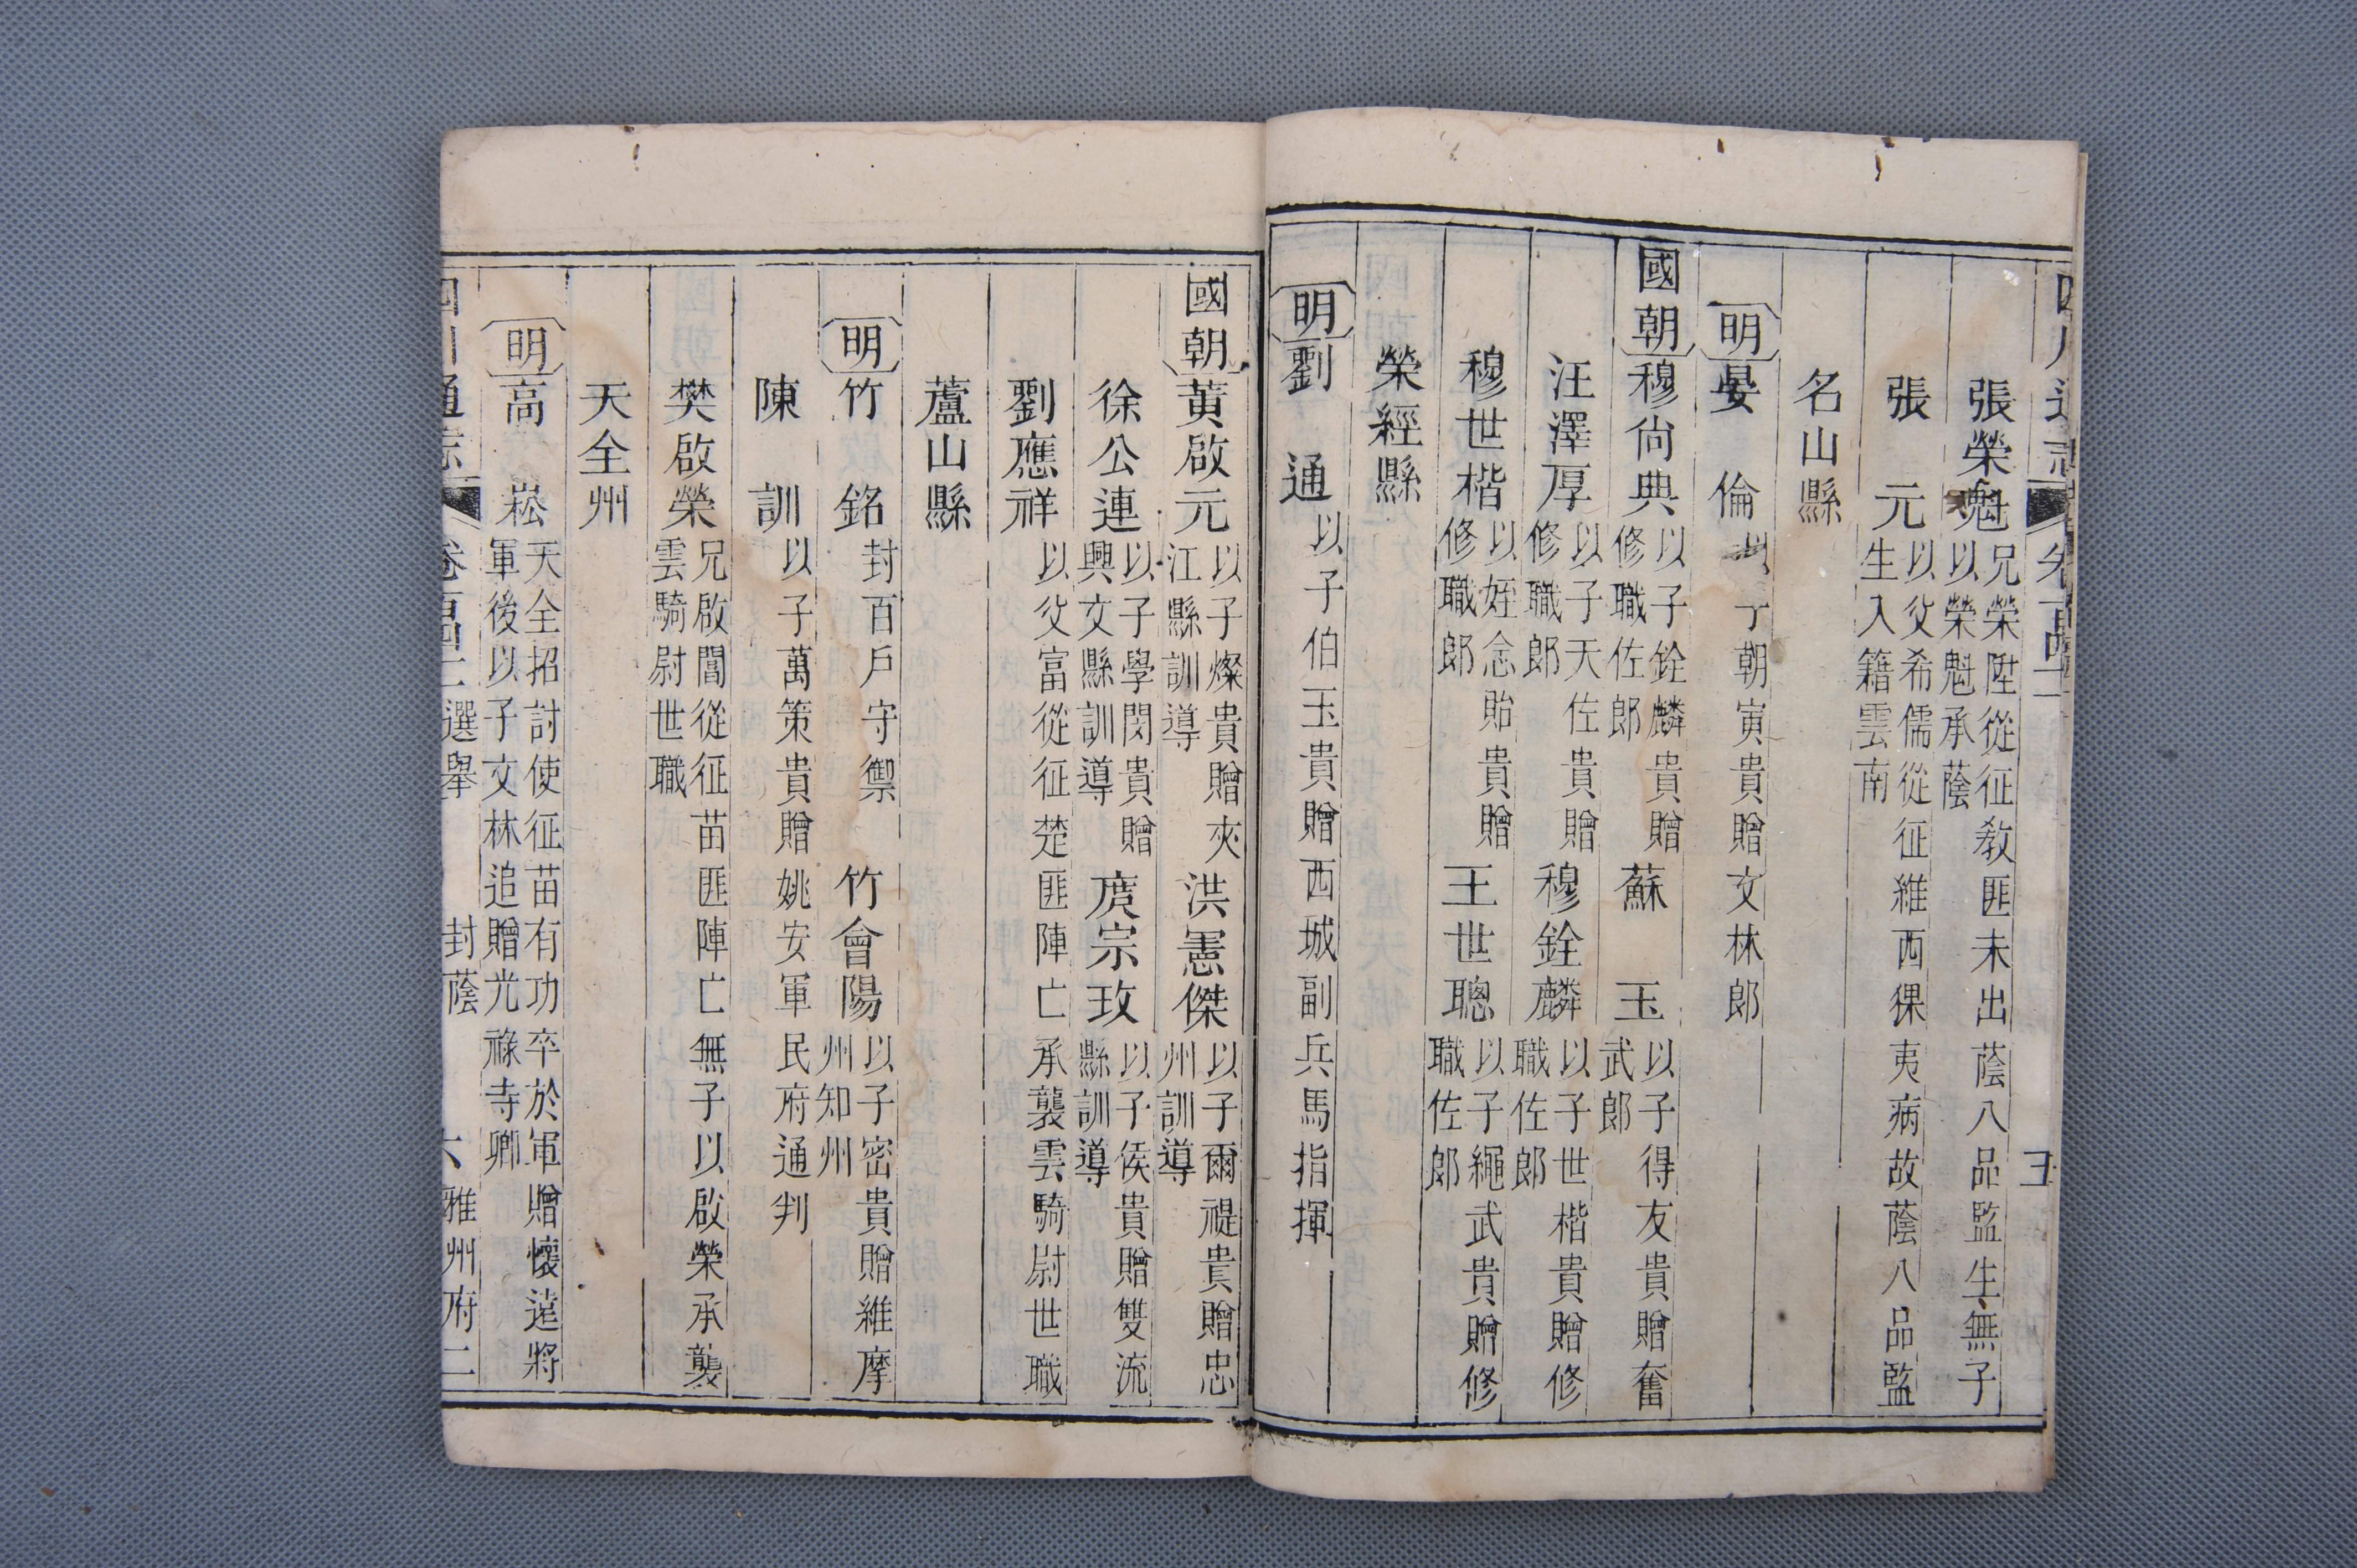 張榮魁兄榮陞從征教匪未出蔭八品監生無子
以榮魁承蔭
張　元以父希儒從征維西猓夷病故蔭八品監
生入籍雲南
名山縣
明晏　倫　子朝寅貴贈文林郎
國朝穆尙典以子銓麟貴贈修職佐郎　蘇　玉以子得友貴贈奮武郎
汪澤厚以子天佐貴贈修職郎　穆銓麟以子世楷貴贈修職佐郎
穆世楷以姪念貽貴贈修職郎　王世聰以子繩武貴贈修職佐郎
榮經縣
明劉　通以子伯玉貴贈西城副兵馬指揮
國朝黃啟元以子燦貴贈夾江縣訓導　洪憲傑以子爾禔貴贈忠州訓導
徐公連以子學閔貴贈興文縣訓導　宗玫以子侯貴贈雙流縣訓導
劉應祥以父富從征楚匪陣亡承襲雲騎尉世職
蘆山縣
明竹　銘封百戶守禦　竹會陽以子密貴贈維摩州知州
陳　訓以子萬策貴贈姚安軍民府通判
樊啟榮兄啟閶從征苗匪陣亡無子以啟榮承襲
雲騎尉世職
天全州
明高　崧天全招討使征苗有功卒於軍贈懷遠將
軍後以子文林追贈光祿寺卿
四川通志　卷百四十二選舉　封蔭　六　雅州府二